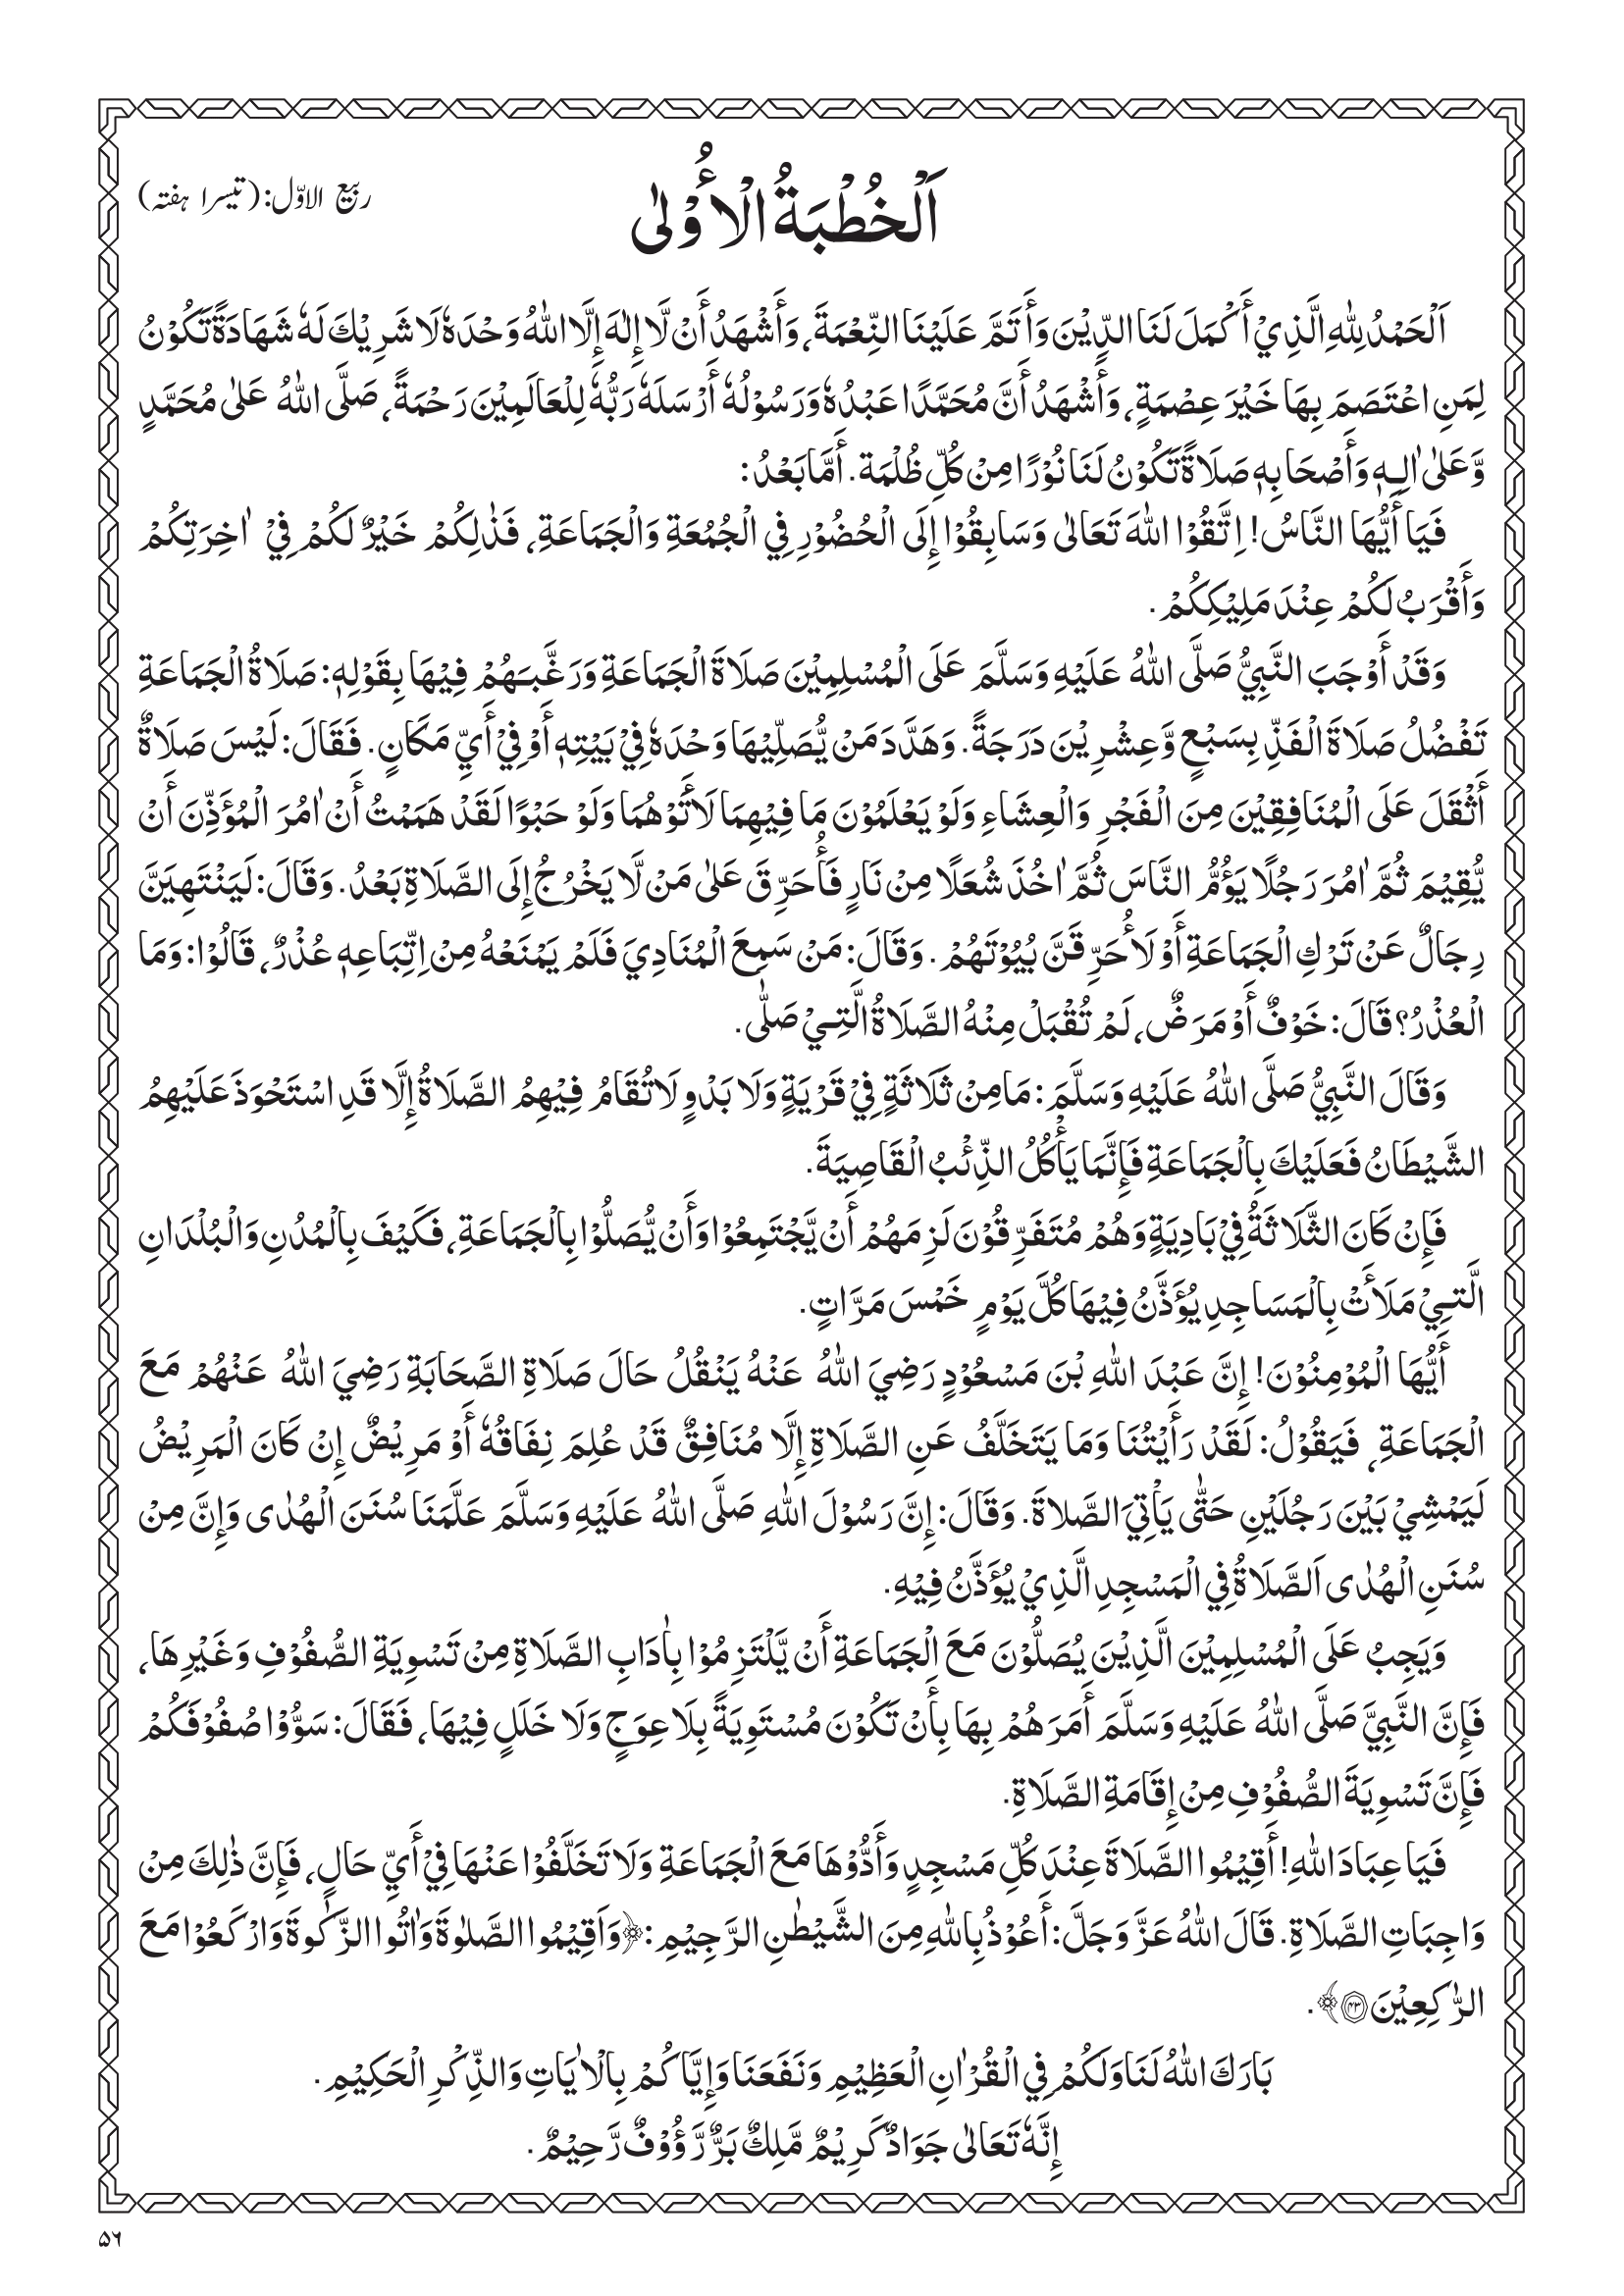 ربیع الاوّل: (تیسرا ہفتہ)
اَلْخُطْبَةُ الْأُوْلٰى
اَلْحَمْدُ لِلّٰهِ الَّذِيْ أَكْمَلَ لَنَا الدِّيْنَ وَأَتَمَّ عَلَيْنَا النِّعْمَةَ، وَأَشْهَدُ أَنْ لَّا إِلٰهَ إِلَّا اللّٰهُ وَحْدَهٗ لَا شَرِيْكَ لَهٗ شَهَادَةً تَكُوْنُ
لِمَنِ اعْتَصَمَ بِهَا خَيْرَ عِصْمَةٍ، وَأَشْهَدُ أَنَّ مُحَمَّدًا عَبْدُهٗ وَرَسُوْلُهٗ أَرْسَلَهٗ رَبُّهٗ لِلْعَالَمِيْنَ رَحْمَةً، صَلَّى اللّٰهُ عَلٰى مُحَمَّدٍ
وَّعَلٰى اٰلِهٖ وَأَصْحَابِهٖ صَلَاةً تَكُوْنُ لَنَا نُوْرًا مِنْ كُلِّ ظُلْمَة. أَمَّا بَعْدُ:
فَيَا أَيُّهَا النَّاسُ! اِتَّقُوْا اللّٰهَ تَعَالٰى وَسَابِقُوْا إِلَى الْحُضُوْرِ فِي الْجُمُعَةِ وَالْجَمَاعَةِ، فَذٰلِكُمْ خَيْرٌ لَكُمْ فِيْ اٰخِرَتِكُمْ
وَأَقْرَبُ لَكُمْ عِنْدَ مَلِيْكِكُمْ.
وَقَدْ أَوْجَبَ النَّبِيُّ صَلَّى اللّٰهُ عَلَيْهِ وَسَلَّمَ عَلَى الْمُسْلِمِيْنَ صَلَاةَ الْجَمَاعَةِ وَرَغَّبَهُمْ فِيْهَا بِقَوْلِهٖ: صَلَاةُ الْجَمَاعَةِ
تَفْضُلُ صَلَاةَ الْفَذِّ بِسَبْعٍ وَّعِشْرِيْنَ دَرَجَةً. وَهَدَّدَ مَنْ يُّصَلِّيْهَا وَحْدَهٗ فِيْ بَيْتِهٖ أَوْ فِيْ أَيِّ مَكَانٍ. فَقَالَ: لَيْسَ صَلَاةٌ
أَثْقَلَ عَلَى الْمُنَافِقِيْنَ مِنَ الْفَجْرِ وَالْعِشَاءِ وَلَوْ يَعْلَمُوْنَ مَا فِيْهِمَا لَأَتَوْهُمَا وَلَوْ حَبْوًا لَقَدْ هَمَمْتُ أَنْ اٰمُرَ الْمُؤَذِّنَ أَنْ
يُّقِيْمَ ثُمَّ اٰمُرَ رَجُلًا يَؤُمُّ النَّاسَ ثُمَّ اٰخُذَ شُعَلًا مِنْ نَارٍ فَأُحَرِّقَ عَلٰى مَنْ لَّا يَخْرُجُ إِلَى الصَّلَاةِ بَعْدُ. وَقَالَ: لَيَنْتَهِيَنَّ
رِجَالٌ عَنْ تَرْكِ الْجَمَاعَةِ أَوْ لَأُحَرِّقَنَّ بُيُوْتَهُمْ. وَقَالَ: مَنْ سَمِعَ الْمُنَادِيَ فَلَمْ يَمْنَعْهُ مِنْ اِتِّبَاعِهٖ عُذْرٌ، قَالُوْا: وَمَا
الْعُذْرُ؟ قَالَ: خَوْفٌ أَوْ مَرَضٌ، لَمْ تُقْبَلْ مِنْهُ الصَّلَاةُ الَّتِيْ صَلّٰى.
وَقَالَ النَّبِيُّ صَلَّى اللّٰهُ عَلَيْهِ وَسَلَّمَ: مَا مِنْ ثَلَاثَةٍ فِيْ قَرْيَةٍ وَلَا بَدْوٍ لَا تُقَامُ فِيْهِمُ الصَّلَاةُ إِلَّا قَدِ اسْتَحْوَذَ عَلَيْهِمُ
الشَّيْطَانُ فَعَلَيْكَ بِالْجَمَاعَةِ فَإِنَّمَا يَأْكُلُ الذِّئْبُ الْقَاصِيَةَ.
فَإِنْ كَانَ الثَّلَاثَةُ فِيْ بَادِيَةٍ وَهُمْ مُتَفَرِّقُوْنَ لَزِمَهُمْ أَنْ يَّجْتَمِعُوْا وَأَنْ يُّصَلُّوْا بِالْجَمَاعَةِ، فَكَيْفَ بِالْمُدُنِ وَالْبُلْدَانِ
الَّتِيْ مَلَأَتْ بِالْمَسَاجِدِ يُؤَذَّنُ فِيْهَا كُلَّ يَوْمٍ خَمْسَ مَرَّاتٍ.
أَيُّهَا الْمُؤْمِنُوْنَ! إِنَّ عَبْدَ اللّٰهِ بْنَ مَسْعُوْدٍ رَضِيَ اللّٰهُ عَنْهُ يَنْقُلُ حَالَ صَلَاةِ الصَّحَابَةِ رَضِيَ اللّٰهُ عَنْهُمْ مَعَ
الْجَمَاعَةِ، فَيَقُوْلُ: لَقَدْ رَأَيْتُنَا وَمَا يَتَخَلَّفُ عَنِ الصَّلَاةِ إِلَّا مُنَافِقٌ قَدْ عُلِمَ نِفَاقُهٗ أَوْ مَرِيْضٌ إِنْ كَانَ الْمَرِيْضُ
لَيَمْشِيْ بَيْنَ رَجُلَيْنِ حَتّٰى يَأْتِيَ الصَّلاةَ. وَقَالَ: إِنَّ رَسُوْلَ اللّٰهِ صَلَّى اللّٰهُ عَلَيْهِ وَسَلَّمَ عَلَّمَنَا سُنَنَ الْهُدٰى وَإِنَّ مِنْ
سُنَنِ الْهُدٰى اَلصَّلَاةُ فِي الْمَسْجِدِ الَّذِيْ يُؤَذَّنُ فِيْهِ.
وَيَجِبُ عَلَى الْمُسْلِمِيْنَ الَّذِيْنَ يُصَلُّوْنَ مَعَ الْجَمَاعَةِ أَنْ يَّلْتَزِمُوْا بِاٰدَابِ الصَّلَاةِ مِنْ تَسْوِيَةِ الصُّفُوْفِ وَغَيْرِهَا،
فَإِنَّ النَّبِيَّ صَلَّى اللّٰهُ عَلَيْهِ وَسَلَّمَ أَمَرَهُمْ بِهَا بِأَنْ تَكُوْنَ مُسْتَوِيَةً بِلَا عِوَجٍ وَلَا خَلَلٍ فِيْهَا، فَقَالَ: سَوُّوْا صُفُوْفَكُمْ
فَإِنَّ تَسْوِيَةَ الصُّفُوْفِ مِنْ إِقَامَةِ الصَّلَاةِ.
فَيَا عِبَادَ اللّٰهِ! أَقِيْمُوا الصَّلَاةَ عِنْدَ كُلِّ مَسْجِدٍ وَأَدُّوْهَا مَعَ الْجَمَاعَةِ وَلَا تَخَلَّفُوْا عَنْهَا فِيْ أَيِّ حَالٍ، فَإِنَّ ذٰلِكَ مِنْ
وَاجِبَاتِ الصَّلَاةِ. قَالَ اللّٰهُ عَزَّ وَجَلَّ: أَعُوْذُ بِاللّٰهِ مِنَ الشَّيْطٰنِ الرَّجِيْمِ: ﴿وَاَقِيْمُوا الصَّلٰوةَ وَاٰتُوا الزَّكٰوةَ وَارْكَعُوْا مَعَ
الرّٰكِعِيْنَ ۴۳﴾.
بَارَكَ اللّٰهُ لَنَا وَلَكُمْ فِي الْقُرْاٰنِ الْعَظِيْمِ وَنَفَعَنَا وَإِيَّاكُمْ بِالْاٰيَاتِ وَالذِّكْرِ الْحَكِيْمِ.
إِنَّهٗ تَعَالٰى جَوَادٌ كَرِيْمٌ مَّلِكٌ بَرٌّ رَّؤُوْفٌ رَّحِيْمٌ.
۵۶